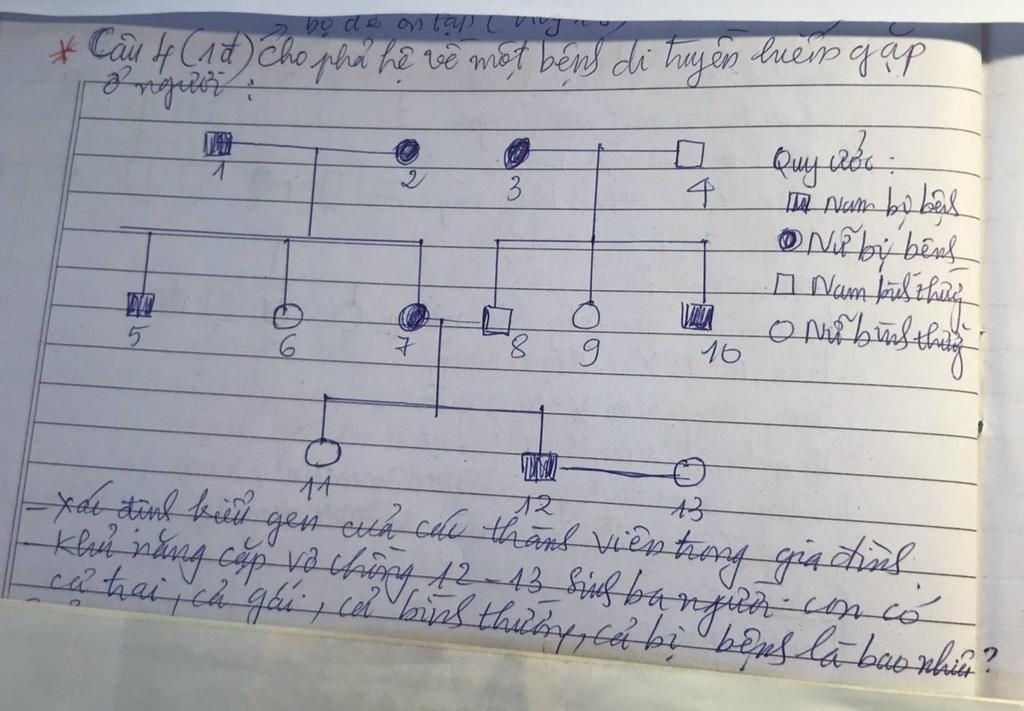 bộ đề ôn tập (
* Câu 4 (1đ) Cho phả hệ về một bệnh di truyền hiếm gặp
ở người:
1
2
3
4
Quy ước:
Nam bị bệnh
Nữ bị bệnh
Nam bình thường
Nữ bình thường
5
6
7
8
9
10
11
12
13
- Xác định kiểu gen của các thành viên trong gia đình.
- Khả năng cặp vợ chồng 12-13 sinh ba người con có
cả trai, cả gái, cả bình thường, cả bị bệnh là bao nhiêu?